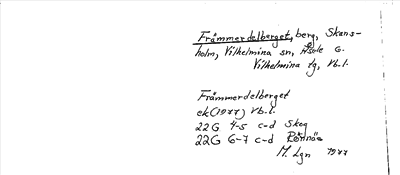 Främmerdelberget, berg, Skans-
holm, Vilhelmina sn, Åsele G.
Vilhelmina tg, Vb.l.
Främmerdelberget
ek (1977) Vb.l.
22G 4-5 c-d Skog
22G 6-7 c-d Rönnäs
M. Lgn 1977